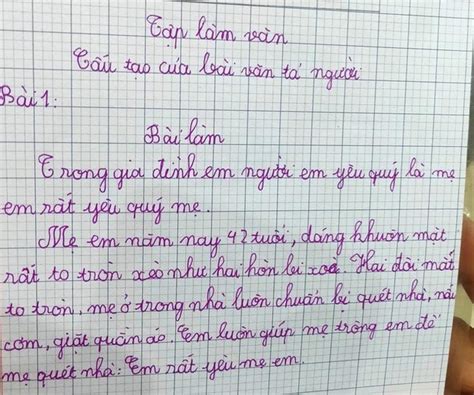 Tập làm văn
Cấu tạo của bài văn tả người
Bài 1:
Bài làm
Trong gia đình em người em yêu quý là mẹ
em rất yêu quý mẹ.
Mẹ em năm nay 42 tuổi, dáng khuôn mặt
rất to tròn xéo như hai hòn bi xoè. Hai đôi mắt
to tròn, mẹ ở trong nhà luôn chuẩn bị quét nhà, nấu
cơm, giặt quần áo. Em luôn giúp mẹ trông em để
mẹ quét nhà. Em rất yêu mẹ em.